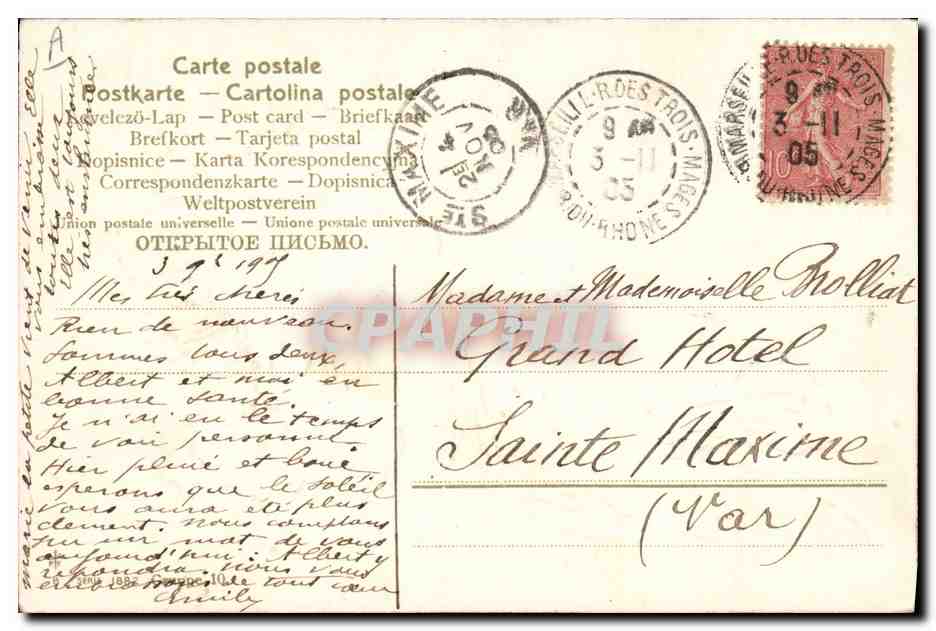 A
Carte postale
Postkarte — Cartolina postale
Levelezö-Lap — Post card — Briefkaart
Brefkort — Tarjeta postal
Dopisnice — Karta Korespondencyjna
Correspondenzkarte — Dopisnica
Weltpostverein
Union postale universelle — Unione postale universale
ОТКРЫТОЕ ПИСЬМО.
STE MAXIME
VAR
MARSEILLE-R. DES TROIS-MAGES
9
3 -11
05
B. DU-RHONE
MARSEILLE-R. DES TROIS MAGES
9
3 -11
05
B. DU-RHONE
10
3 9bre 1905
Mes très chères
Rien de nouveau.
Sommes tous deux,
Albert et moi en
bonne santé.
Je n'ai eu le temps
de voir personne.
Hier pluie et boue
esperons que le soleil
vous aura été plus
clement. Nous comptons
sur un mot de vous
aujourd'hui. Albert y
repondra. Nous vous
embrassons de tout cœur
Emily
Serie 1882 Gruppe 10
Marie la petite vient de venir. Elle
vous embrasse
toutes deux
Elle est toujours
très enrhumée
Madame et Mademoiselle Brolliat
Grand Hotel
Sainte Maxime
(Var)
CPAPHIL